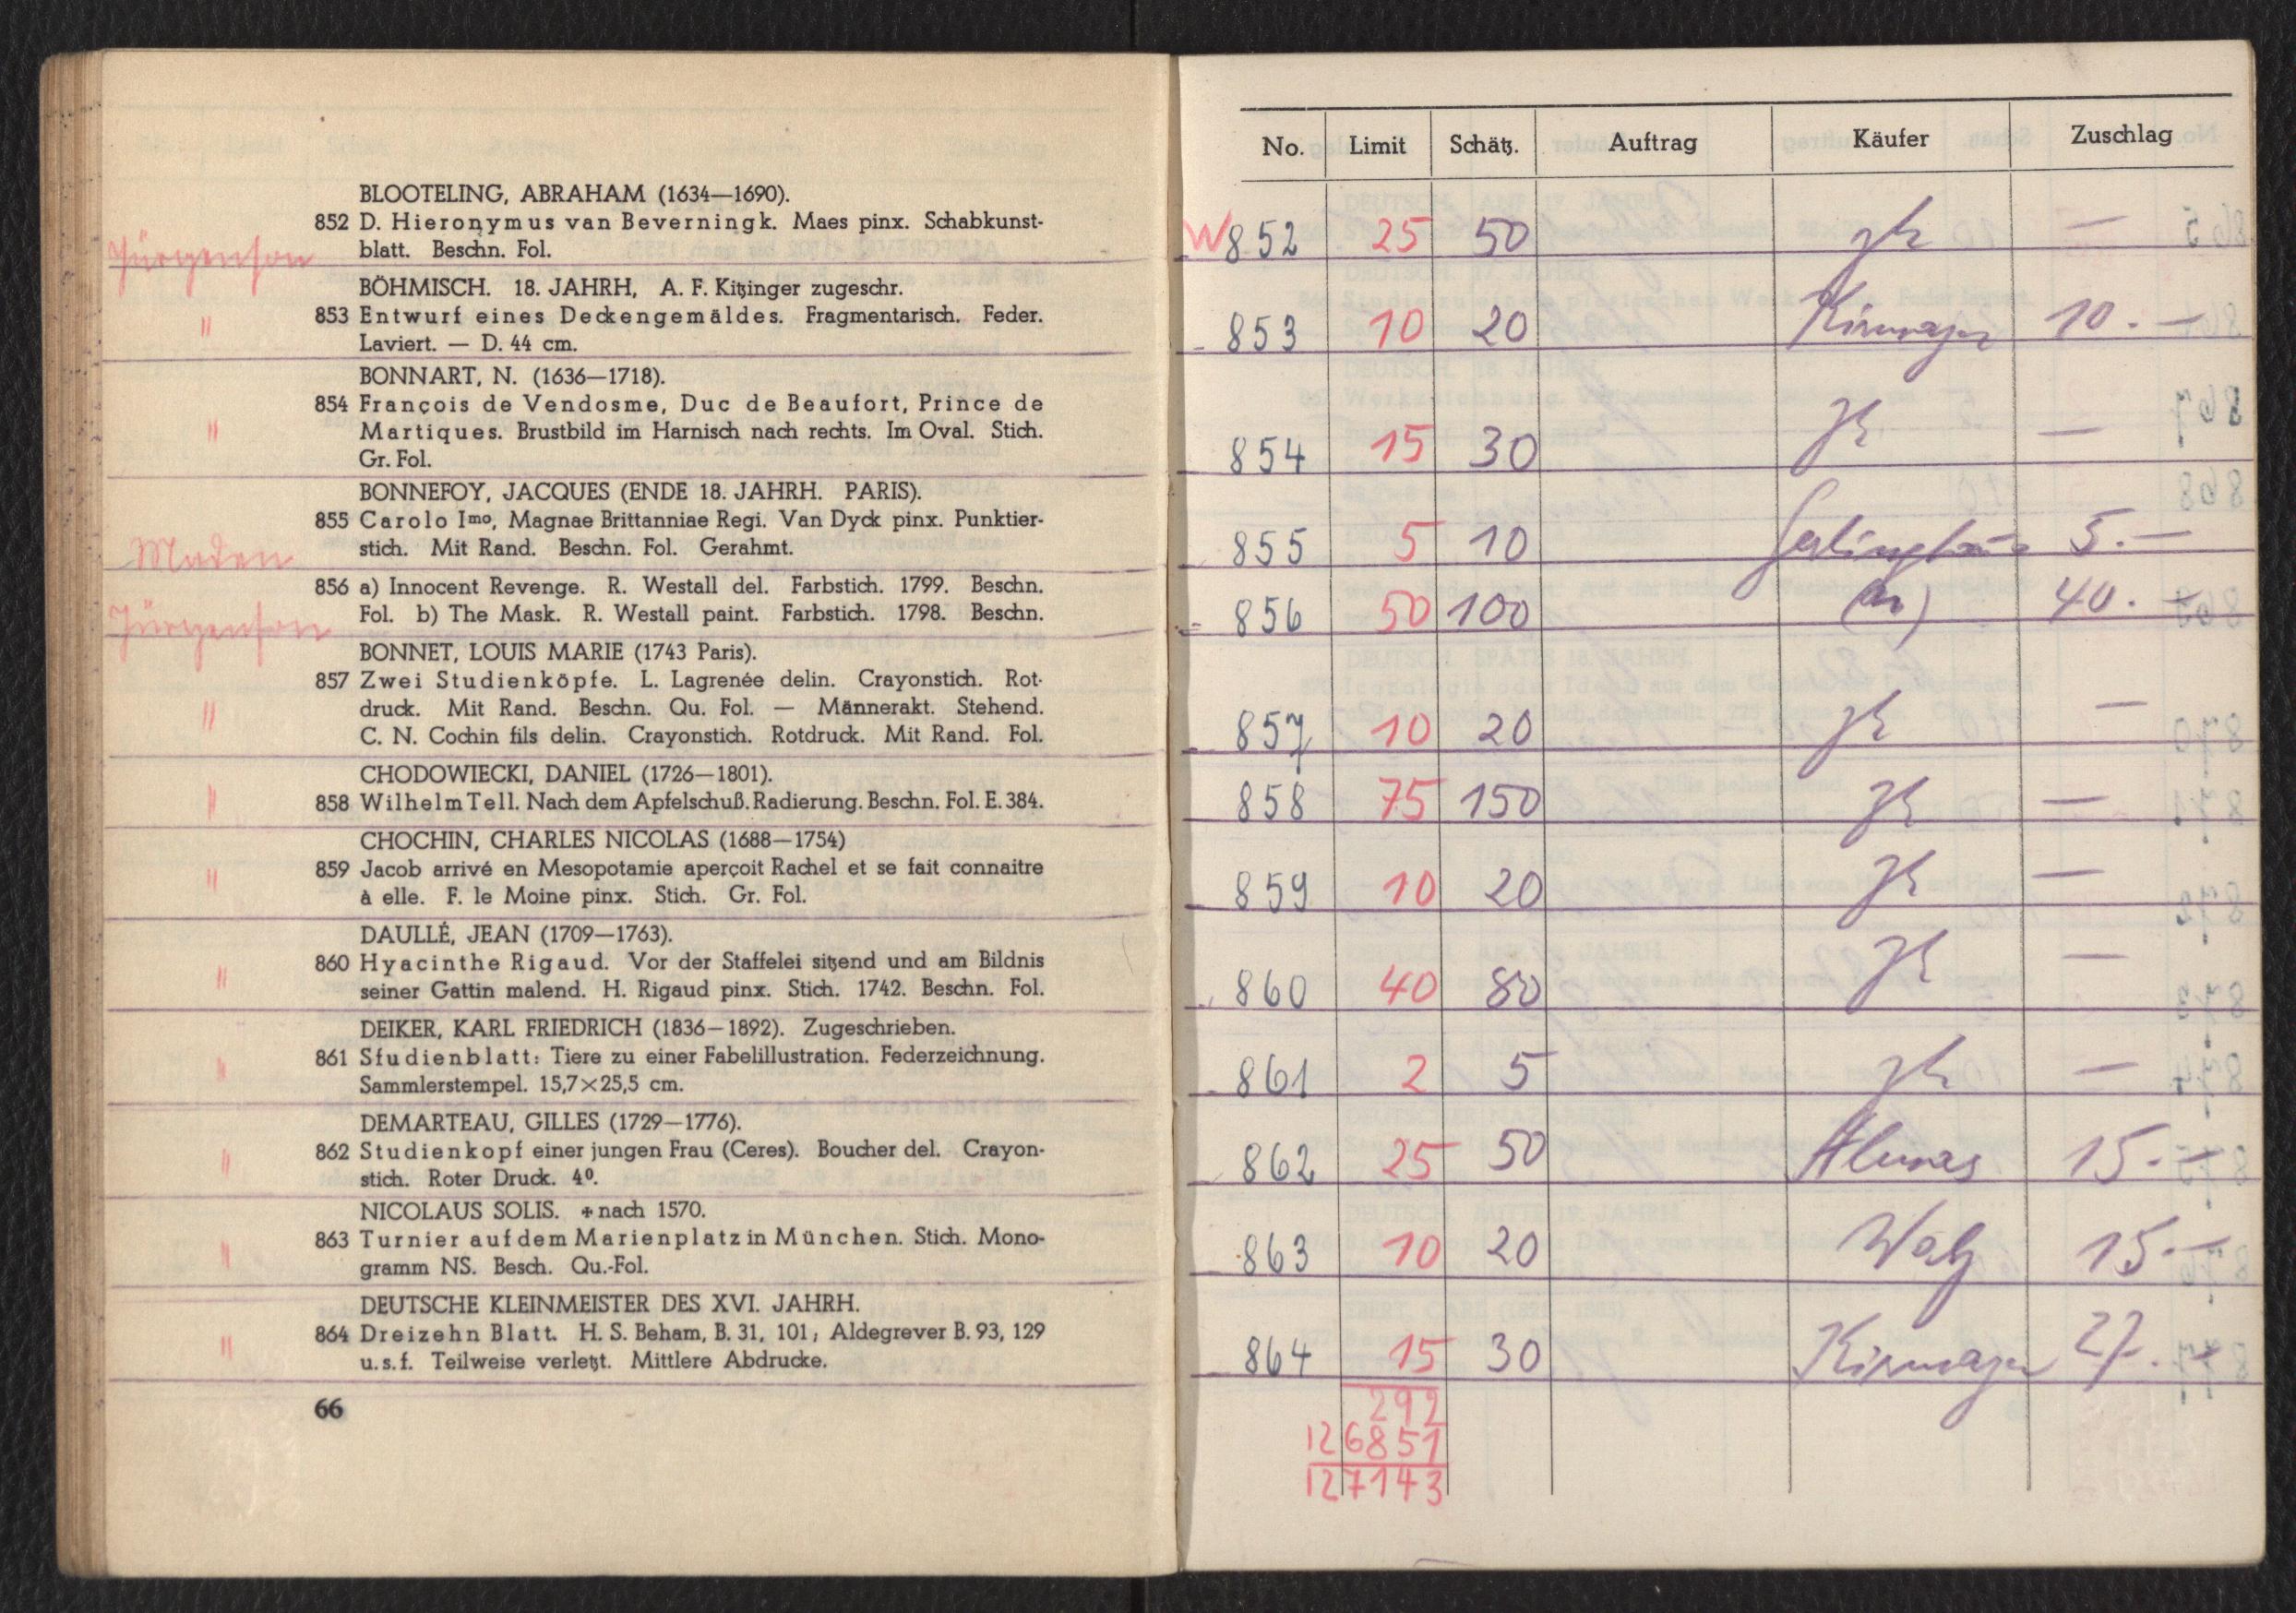 BLOOTELING, ABRAHAM (1634—1690).
852 D. Hieronymus van Beverningk. Maes pinx. Schabkunst-
blatt. Beschn. Fol.
Jürgenson
BÖHMISCH. 18. JAHRH, A. F. Kitzinger zugeschr.
" 853 Entwurf eines Deckengemäldes. Fragmentarisch. Feder.
Laviert. — D. 44 cm.
BONNART, N. (1636—1718).
854 François de Vendosme, Duc de Beaufort, Prince de
" Martiques. Brustbild im Harnisch nach rechts. Im Oval. Stich.
Gr. Fol.
BONNEFOY, JACQUES (ENDE 18. JAHRH. PARIS).
855 Carolo Imo, Magnae Brittanniae Regi. Van Dyck pinx. Punktier-
stich. Mit Rand. Beschn. Fol. Gerahmt.
Maden
856 a) Innocent Revenge. R. Westall del. Farbstich. 1799. Beschn.
Fol. b) The Mask. R. Westall paint. Farbstich. 1798. Beschn.
Jürgenson
BONNET, LOUIS MARIE (1743 Paris).
857 Zwei Studienköpfe. L. Lagrenée delin. Crayonstich. Rot-
" druck. Mit Rand. Beschn. Qu. Fol. — Männerakt. Stehend.
C. N. Cochin fils delin. Crayonstich. Rotdruck. Mit Rand. Fol.
CHODOWIECKI, DANIEL (1726—1801).
" 858 Wilhelm Tell. Nach dem Apfelschuß. Radierung. Beschn. Fol. E. 384.
CHOCHIN, CHARLES NICOLAS (1688—1754)
" 859 Jacob arrivé en Mesopotamie aperçoit Rachel et se fait connaitre
à elle. F. le Moine pinx. Stich. Gr. Fol.
DAULLÉ, JEAN (1709—1763).
" 860 Hyacinthe Rigaud. Vor der Staffelei sitzend und am Bildnis
seiner Gattin malend. H. Rigaud pinx. Stich. 1742. Beschn. Fol.
DEIKER, KARL FRIEDRICH (1836—1892). Zugeschrieben.
" 861 Studienblatt: Tiere zu einer Fabelillustration. Federzeichnung.
Sammlerstempel. 15,7×25,5 cm.
DEMARTEAU, GILLES (1729—1776).
" 862 Studienkopf einer jungen Frau (Ceres). Boucher del. Crayon-
stich. Roter Druck. 4⁰.
NICOLAUS SOLIS. + nach 1570.
" 863 Turnier auf dem Marienplatz in München. Stich. Mono-
gramm NS. Besch. Qu.-Fol.
DEUTSCHE KLEINMEISTER DES XVI. JAHRH.
" 864 Dreizehn Blatt. H. S. Beham, B. 31, 101; Aldegrever B. 93, 129
u. s. f. Teilweise verletzt. Mittlere Abdrucke.
66
No. Limit Schätz. Auftrag Käufer Zuschlag
W 852 25 50 —
853 10 20 10.—
854 15 30 —
855 5 10 5.—
856 50 100 40.—
857 10 20 —
858 75 150 —
859 10 20 —
860 40 80 —
861 2 5 —
862 25 50 15.—
863 10 20 15.—
864 15 30 27.—
292
126851
127143